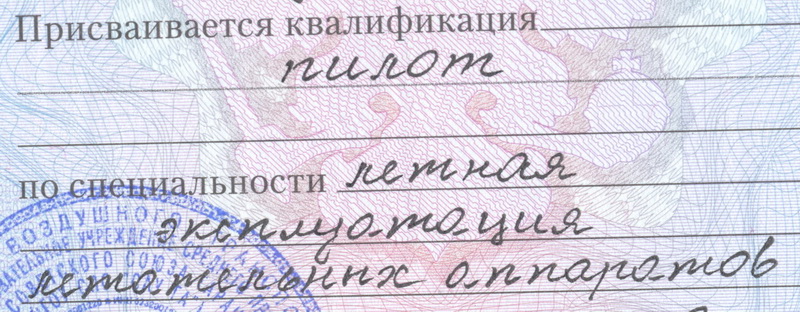 Присваивается квалификация
пилот
по специальности летная
эксплуатация
летательных аппаратов
ВОЗДУШНОГО
УЧРЕЖДЕНИЕ СРЕДНЕ
СОВЕТСКОГО СОЮЗА